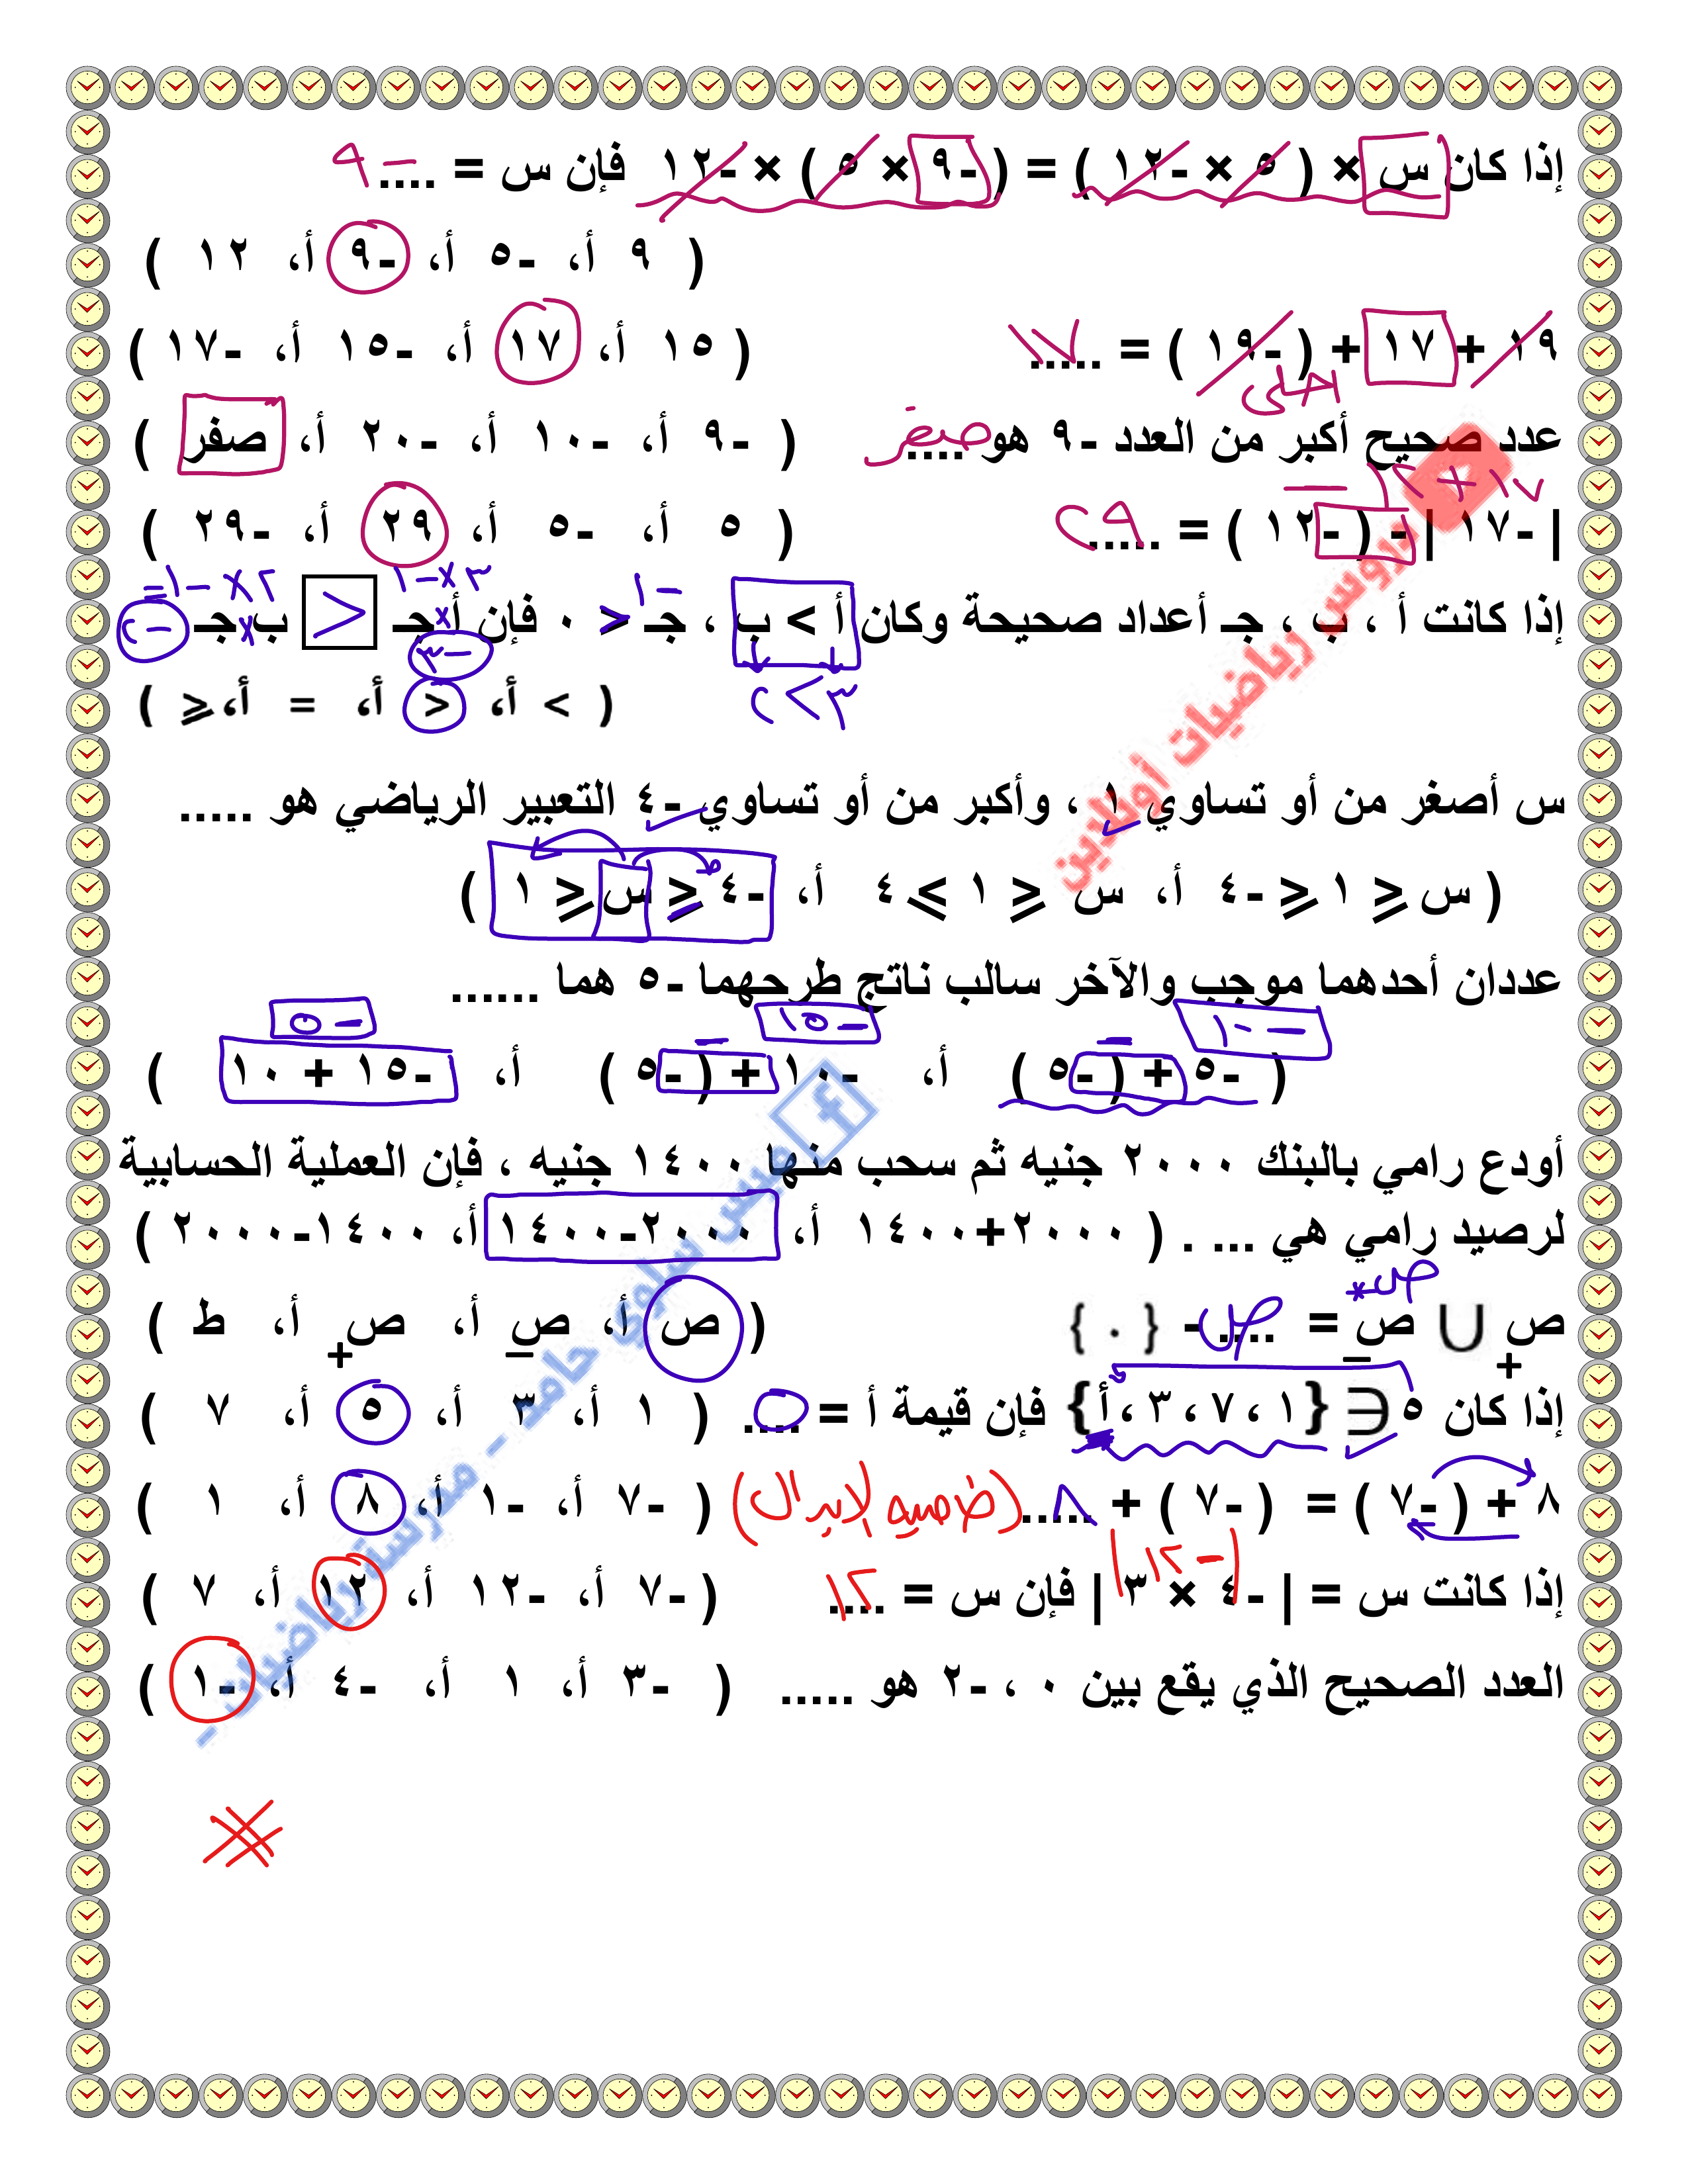 إذا كان س × ( ٥ × -١٢ ) = ( -٩ × ٥ ) × -١٢ فإن س = .... -٩
( ٩ أ، -٥ أ، -٩ أ، ١٢ )
١٩ + ١٧ + ( -١٩ ) = ..... ١٧ ( ١٥ أ، ١٧ أ، -١٥ أ، -١٧ )
عدد صحيح أكبر من العدد -٩ هو .... صفر ( -٩ أ، -١٠ أ، -٢٠ أ، صفر )
١٧ + ١٢
| -١٧ | - ( -١٢ ) = ..... ٢٩ ( ٥ أ، -٥ أ، ٢٩ أ، -٢٩ )
٣ × -١ ٢ × -١ =
إذا كانت أ ، ب ، جـ أعداد صحيحة وكان أ > ب ، جـ < ٠ فإن أ جـ < ب جـ
-١ -٣ -٢
٣ > ٢
( > أ، < أ، = أ، ⩾ )
س أصغر من أو تساوي ١ ، وأكبر من أو تساوي -٤ التعبير الرياضي هو .....
( س ⩽ ١ ⩽ -٤ أ، س ⩽ ١ ⩾ ٤ أ، -٤ ⩽ س ⩽ ١ )
عددان أحدهما موجب والآخر سالب ناتج طرحهما -٥ هما ......
-١٠ -١٥ -٥
( -٥ + ( -٥ ) أ، -١٠ + ( -٥ ) أ، -١٥ + ١٠ )
أودع رامي بالبنك ٢٠٠٠ جنيه ثم سحب منها ١٤٠٠ جنيه ، فإن العملية الحسابية
لرصيد رامي هي ... . ( ٢٠٠٠+١٤٠٠ أ، ٢٠٠٠-١٤٠٠ أ، ١٤٠٠-٢٠٠٠ )
ص*
ص+ ∪ ص- = .... ص - { ٠ } ( ص أ، ص- أ، ص+ أ، ط )
إذا كان ٥ ∈ {١ ، ٧ ، ٣ ، أ} فإن قيمة أ = .... ٥ ( ١ أ، ٣ أ، ٥ أ، ٧ )
٨ + ( -٧ ) = ( -٧ ) + ..... ٨ (خاصية الإبدال) ( -٧ أ، -١ أ، ٨ أ، ١ )
|-١٢|
إذا كانت س = | -٤ × ٣ | فإن س = .... ١٢ ( -٧ أ، -١٢ أ، ١٢ أ، ٧ )
العدد الصحيح الذي يقع بين ٠ ، -٢ هو ..... ( -٣ أ، ١ أ، -٤ أ، -١ )
دروس رياضيات أونلاين
ميس سلوي حامد - مدرسة رياضيات -